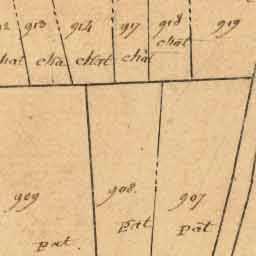 913 914 917 918 919
chat cha chat chat chat
909 908. 907
pat pat pat